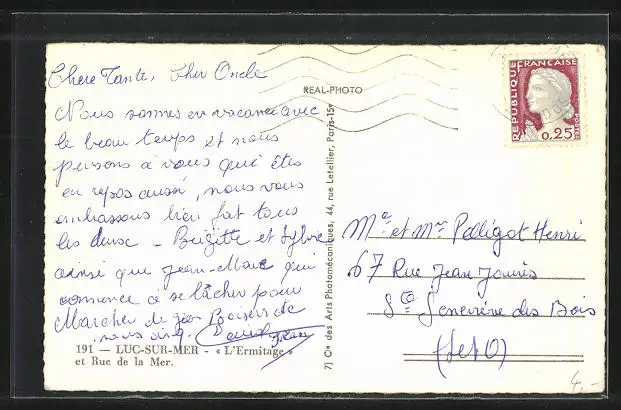 Chere Tante, Cher Oncle
Nous sommes en vacance avec
le beau temps et nous
pensons à vous qui êtes
en repos aussi, nous vous
embrassons bien fort tous
les deux - Brigitte et Sylvie
ainsi que Jean-Marc qui
commence à se lâcher pour
Marcher de gros Baisers de
nous cinq.
191 — LUC-SUR-MER - « L'Ermitage »
et Rue de la Mer.
REAL-PHOTO
7) Cie des Arts Photomécaniques, 44, rue Letellier, Paris-15e
REPUBLIQUE FRANÇAISE
POSTES
0,25
Me et Mr Pelligot Henri
67 Rue Jean Jaurès
Ste Geneviève des Bois
(S et O)
4,-